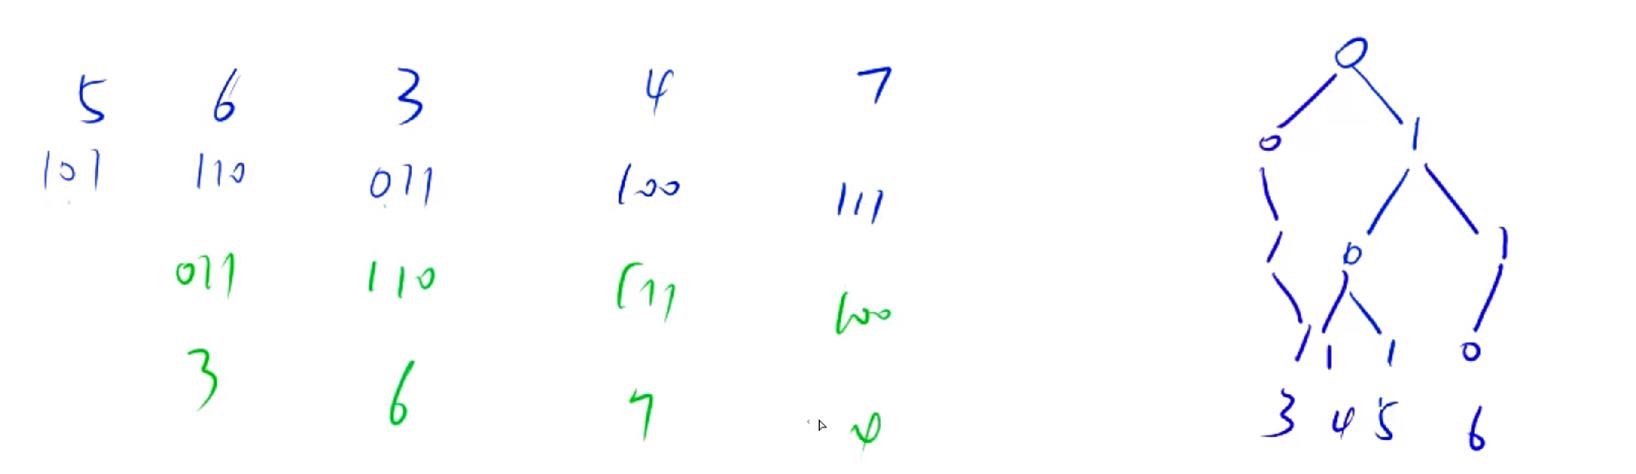 5 6 3 4 7
101 110 011 100 111
011 110 111 100
3 6 7 4
0
0 1
1 0 1
1 1 1 0
3 4 5 6